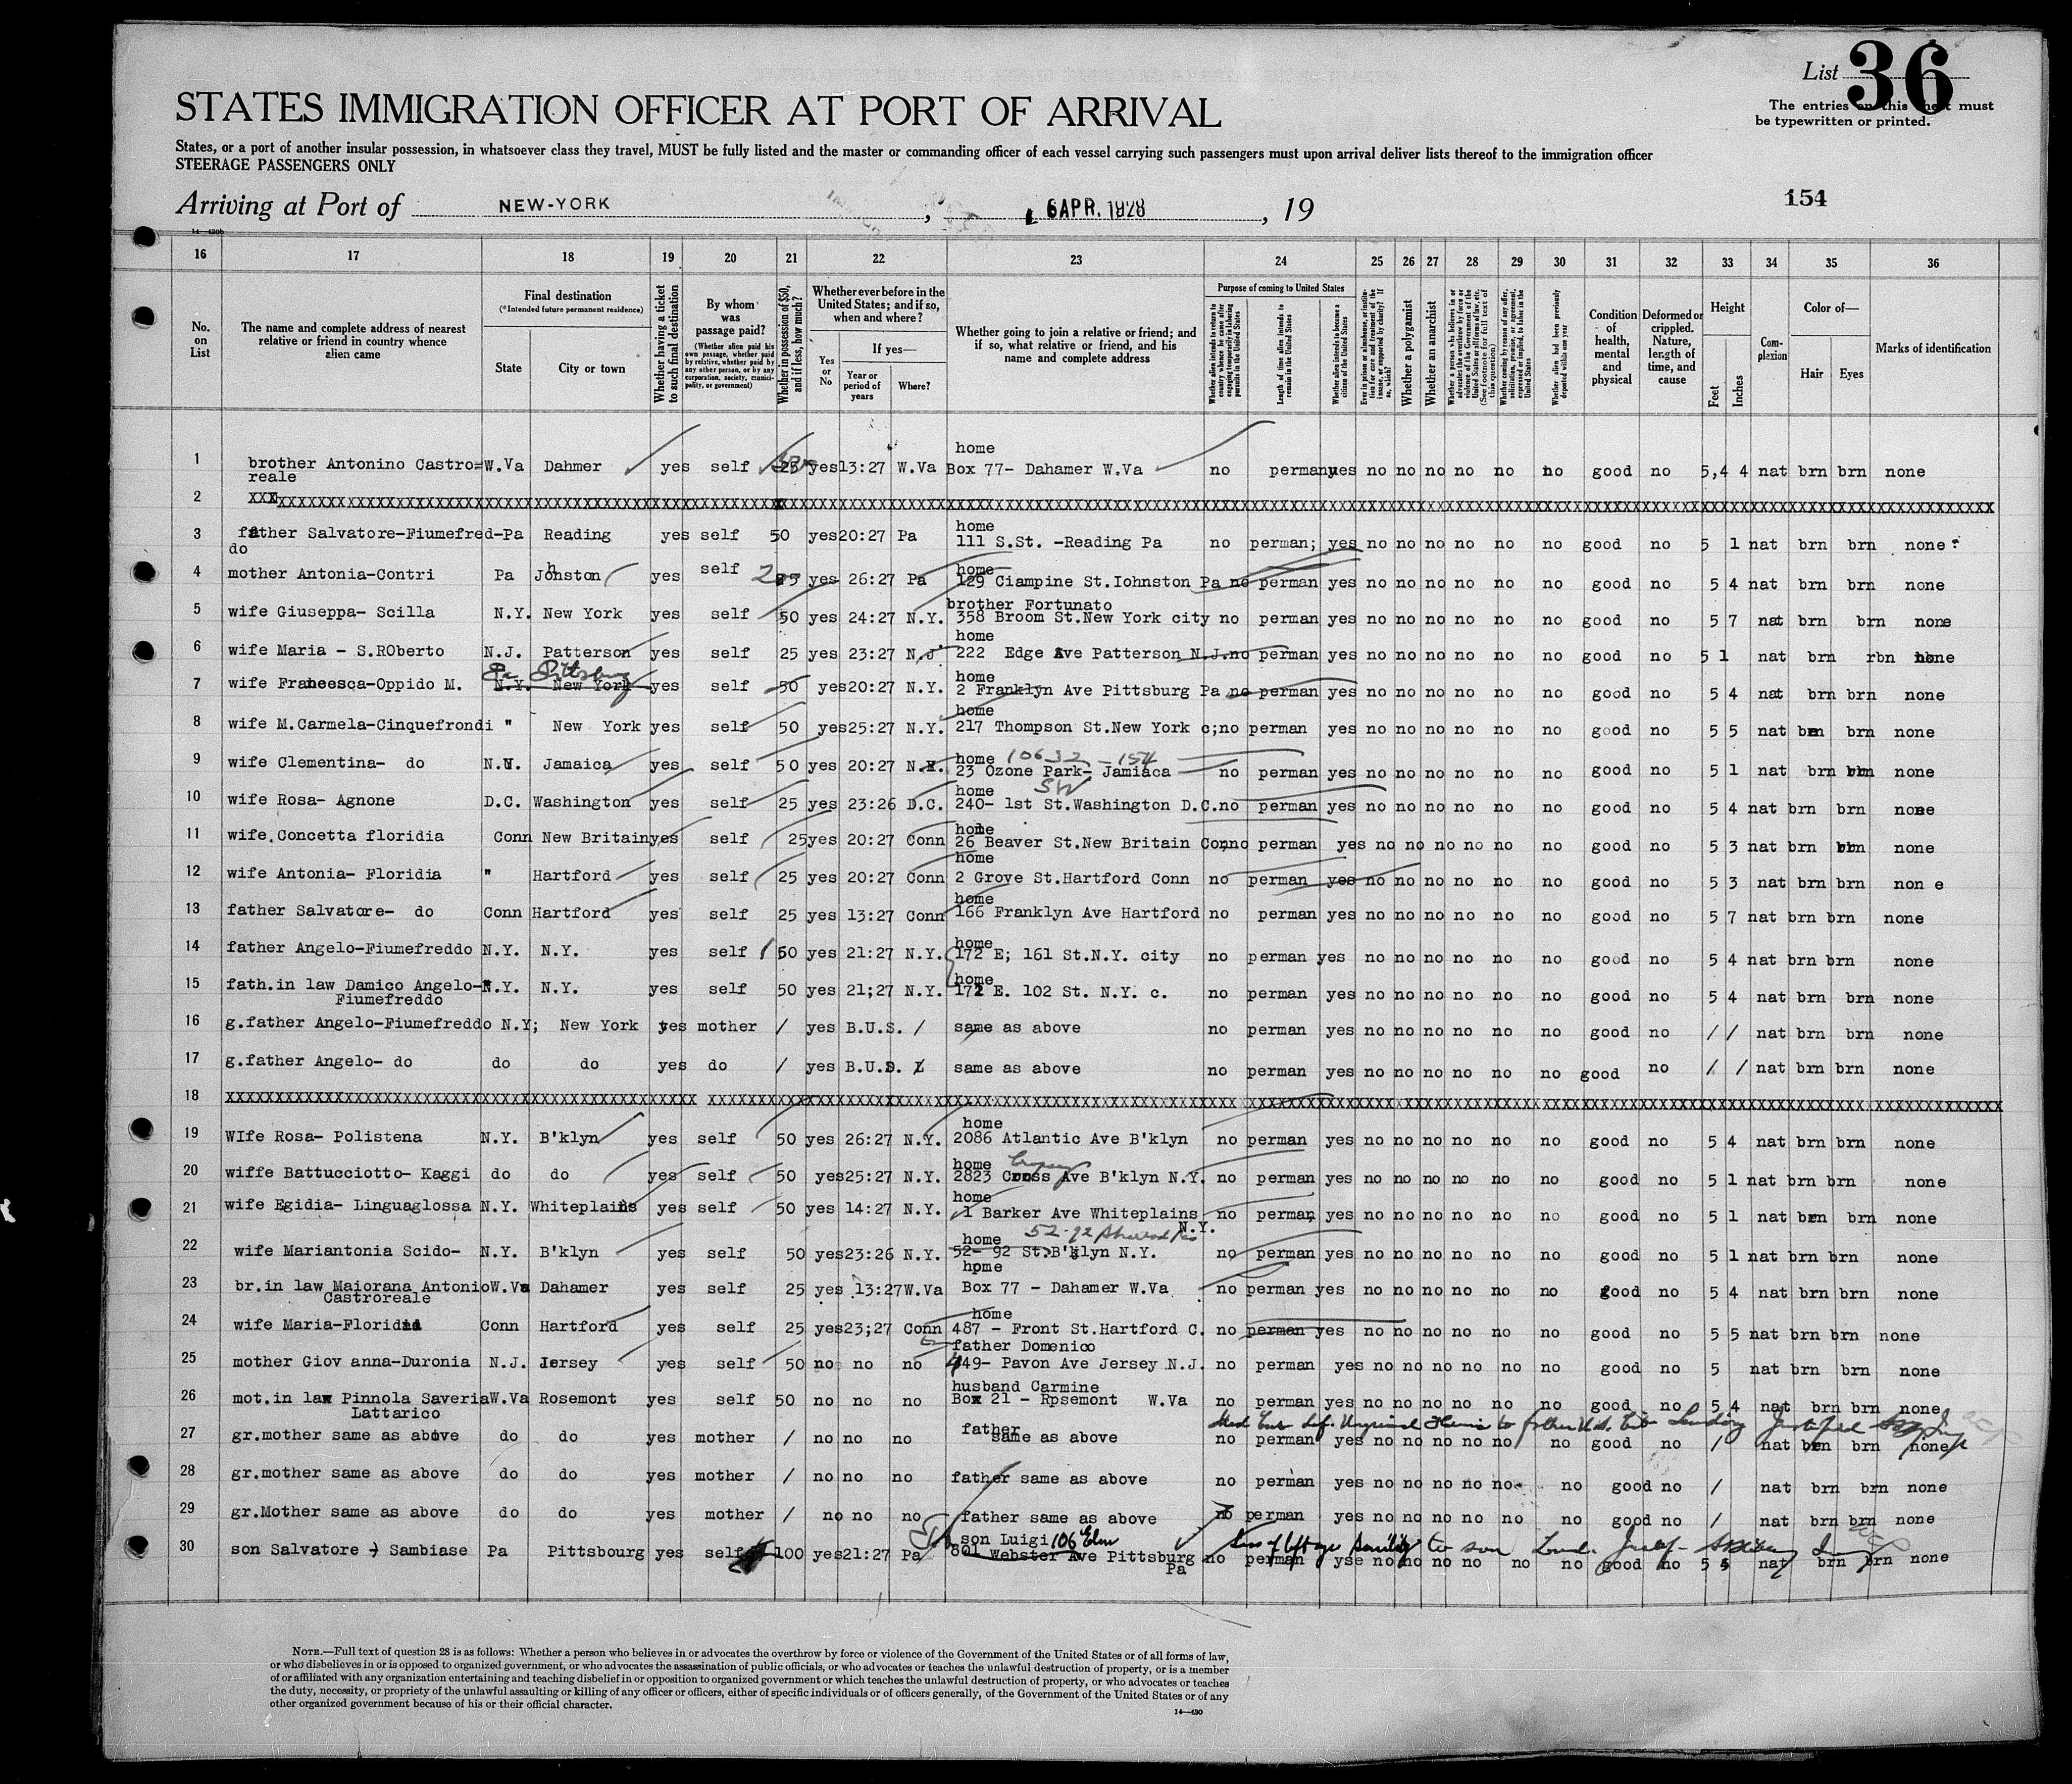 List 36
The entries on this sheet must
be typewritten or printed.
STATES IMMIGRATION OFFICER AT PORT OF ARRIVAL
States, or a port of another insular possession, in whatsoever class they travel, MUST be fully listed and the master or commanding officer of each vessel carrying such passengers must upon arrival deliver lists thereof to the immigration officer
STEERAGE PASSENGERS ONLY
Arriving at Port of NEW-YORK, 6 APR. 1928, 19
154
14-430b
16 17 18 19 20 21 22 23 24 25 26 27 28 29 30 31 32 33 34 35 36
No. on List
The name and complete address of nearest relative or friend in country whence alien came
Final destination
(*Intended future permanent residence)
State
City or town
Whether having a ticket to such final destination
By whom was passage paid?
(Whether alien paid his own passage, whether paid by relative, whether paid by any other person, or by any corporation, society, municipality, or government)
Whether in possession of $50, and if less, how much?
Whether ever before in the United States; and if so, when and where?
Yes or No
If yes—
Year or period of years
Where?
Whether going to join a relative or friend; and if so, what relative or friend, and his name and complete address
Purpose of coming to United States
Whether alien intends to return to country whence he came after engaging temporarily in laboring pursuits in the United States
Length of time alien intends to remain in the United States
Whether alien intends to become a citizen of the United States
Ever in prison or almshouse, or institution for care and treatment of the insane, or supported by charity? If so, which?
Whether a polygamist
Whether an anarchist
Whether a person who believes in or advocates the overthrow by force or violence of the Government of the United States or all forms of law, etc. (See footnote for full text of this question)
Whether coming by reason of any offer, solicitation, promise, or agreement, expressed or implied, to labor in the United States
Whether alien had been previously deported within one year
Condition of health, mental and physical
Deformed or crippled. Nature, length of time, and cause
Height
Feet
Inches
Complexion
Color of—
Hair
Eyes
Marks of identification
home
1 brother Antonino Castro= W.Va Dahmer yes self 25 yes 13:27 W.Va Box 77- Dahamer W.Va no perman yes no no no no no no good no 5,4 4 nat brn brn none
reale
2 XXXXXXXXXXXXXXXXXXXXXXXXXXXXXXXXXXXXXXXXXXXXXXXX
home
3 father Salvatore-Fiumefred- Pa Reading yes self 50 yes 20:27 Pa 111 S.St. -Reading Pa no perman; yes no no no no no no good no 5 1 nat brn brn none
do
home
4 mother Antonia-Contri Pa Johnston yes self 25 yes 26:27 Pa 129 Ciampine St.Iohnston Pa no perman yes no no no no no no good no 5 4 nat brn brn none
brother Fortunato
5 wife Giuseppa- Scilla N.Y. New York yes self 50 yes 24:27 N.Y. 358 Broom St.New York city no perman yes no no no no no no good no 5 7 nat brn brn none
home
6 wife Maria - S.ROberto N.J. Patterson yes self 25 yes 23:27 N.J 222 Edge Ave Patterson N.J. no perman yes no no no no no no good no 5 1 nat brn rbn none
Pa Pittsburg
home
7 wife Francesca-Oppido M. N.Y. New York yes self 50 yes 20:27 N.Y. 2 Franklyn Ave Pittsburg Pa no perman yes no no no no no no good no 5 4 nat brn brn none
home
8 wife M.Carmela-Cinquefrondi " New York yes self 50 yes 25:27 N.Y. 217 Thompson St.New York c; no perman yes no no no no no no good no 5 5 nat brn brn none
home 10632 - 154
9 wife Clementina- do N.Y. Jamaica yes self 50 yes 20:27 N.Y. 23 Ozone Park- Jamiaca no perman yes no no no no no no good no 5 1 nat brn brn none
home SW
10 wife Rosa- Agnone D.C. Washington yes self 25 yes 23:26 D.C. 240- 1st St.Washington D.C. no perman yes no no no no no no good no 5 4 nat brn brn none
home
11 wife.Concetta floridia Conn New Britain yes self 25 yes 20:27 Conn 26 Beaver St.New Britain Con, no perman yes no no no no no no good no 5 3 nat brn brn none
home
12 wife Antonia- Floridia " Hartford yes self 25 yes 20:27 Conn 2 Grove St.Hartford Conn no perman yes no no no no no no good no 5 3 nat brn brn non e
home
13 father Salvatore- do Conn Hartford yes self 25 yes 13:27 Conn 166 Franklyn Ave Hartford no perman yes no no no no no no good no 5 7 nat brn brn none
home
14 father Angelo-Fiumefreddo N.Y. N.Y. yes self 50 yes 21:27 N.Y. 172 E; 161 St.N.Y. city no perman yes no no no no no no good no 5 4 nat brn brn none
home
15 fath.in law Damico Angelo- N.Y. N.Y. yes self 50 yes 21;27 N.Y. 172 E. 102 St. N.Y. c. no perman yes no no no no no no good no 5 4 nat brn brn none
Fiumefreddo
16 g.father Angelo-Fiumefreddo N.Y; New York yes mother / yes B.U.S. / same as above no perman yes no no no no no no good no / / nat brn brn none
17 g.father Angelo- do do do yes do / yes B.U.S. / same as above no perman yes no no no no no no good no / / nat brn brn none
18 XXXXXXXXXXXXXXXXXXXXXXXXXXXXXXXXXXXXXXXXXXXXXXXX
home
19 WIfe Rosa- Polistena N.Y. B'klyn yes self 50 yes 26:27 N.Y. 2086 Atlantic Ave B'klyn no perman yes no no no no no no good no 5 4 nat brn brn none
home Cropsey
20 wiffe Battucciotto- Kaggi do do yes self 50 yes 25:27 N.Y. 2823 Cross Ave B'klyn N.Y. no perman yes no no no no no no good no 5 1 nat brn brn none
home
21 wife Egidia- Linguaglossa N.Y. Whiteplains yes self 50 yes 14:27 N.Y. 1 Barker Ave Whiteplains no perman, yes no no no no no no good no 5 1 nat brn brn none
N.Y.
home 52-92
22 wife Mariantonia Scido- N.Y. B'klyn yes self 50 yes 23:26 N.Y. 52- 92 St.B'klyn N.Y. no perman yes no no no no no no good no 5 1 nat brn brn none
home
23 br.in law Maiorana Antonio W.Va Dahamer yes self 25 yes 13:27 W.Va Box 77 - Dahamer W.Va no perman yes no no no no no no good no 5 4 nat brn brn none
Castroreale
home
24 wife Maria-Floridia Conn Hartford yes self 25 yes 23;27 Conn 487 - Front St.Hartford C. no perman yes no no no no no no good no 5 5 nat brn brn none
father Domenico
25 mother Giov anna-Duronia N.J. Iersey yes self 50 no no no 449- Pavon Ave Jersey N.J. no perman yes no no no no no no good no 5 nat brn brn none
husband Carmine
26 mot.in law Pinnola Saveria W.Va Rosemont yes self 50 no no no Box 21 - Rpsemont W.Va no perman yes no no no no no no good no 5 4 nat brn brn none
Lattarico
father
27 gr.mother same as above do do yes mother / no no no same as above no perman yes no no no no no no good no / nat brn brn none
28 gr.mother same as above do do yes mother / no no no father same as above no perman yes no no no no no no good no / nat brn brn none
29 gr.Mother same as above do do yes mother / no no no father same as above no perman yes no no no no no no good no / nat brn brn none
son Luigi 106 Elm
30 son Salvatore -) Sambiase Pa Pittsbourg yes self 100 yes 21:27 Pa 801 Webster Ave Pittsburg no perman yse no no no no no no good no 5 5 nat brn brn none
Pa
NOTE.—Full text of question 28 is as follows: Whether a person who believes in or advocates the overthrow by force or violence of the Government of the United States or of all forms of law,
or who disbelieves in or is opposed to organized government, or who advocates the assassination of public officials, or who advocates or teaches the unlawful destruction of property, or is a member
of or affiliated with any organization entertaining and teaching disbelief in or opposition to organized government or which teaches the unlawful destruction of property, or who advocates or teaches
the duty, necessity, or propriety of the unlawful assaulting or killing of any officer or officers, either of specific individuals or of officers generally, of the Government of the United States or of any
other organized government because of his or their official character.
14-430